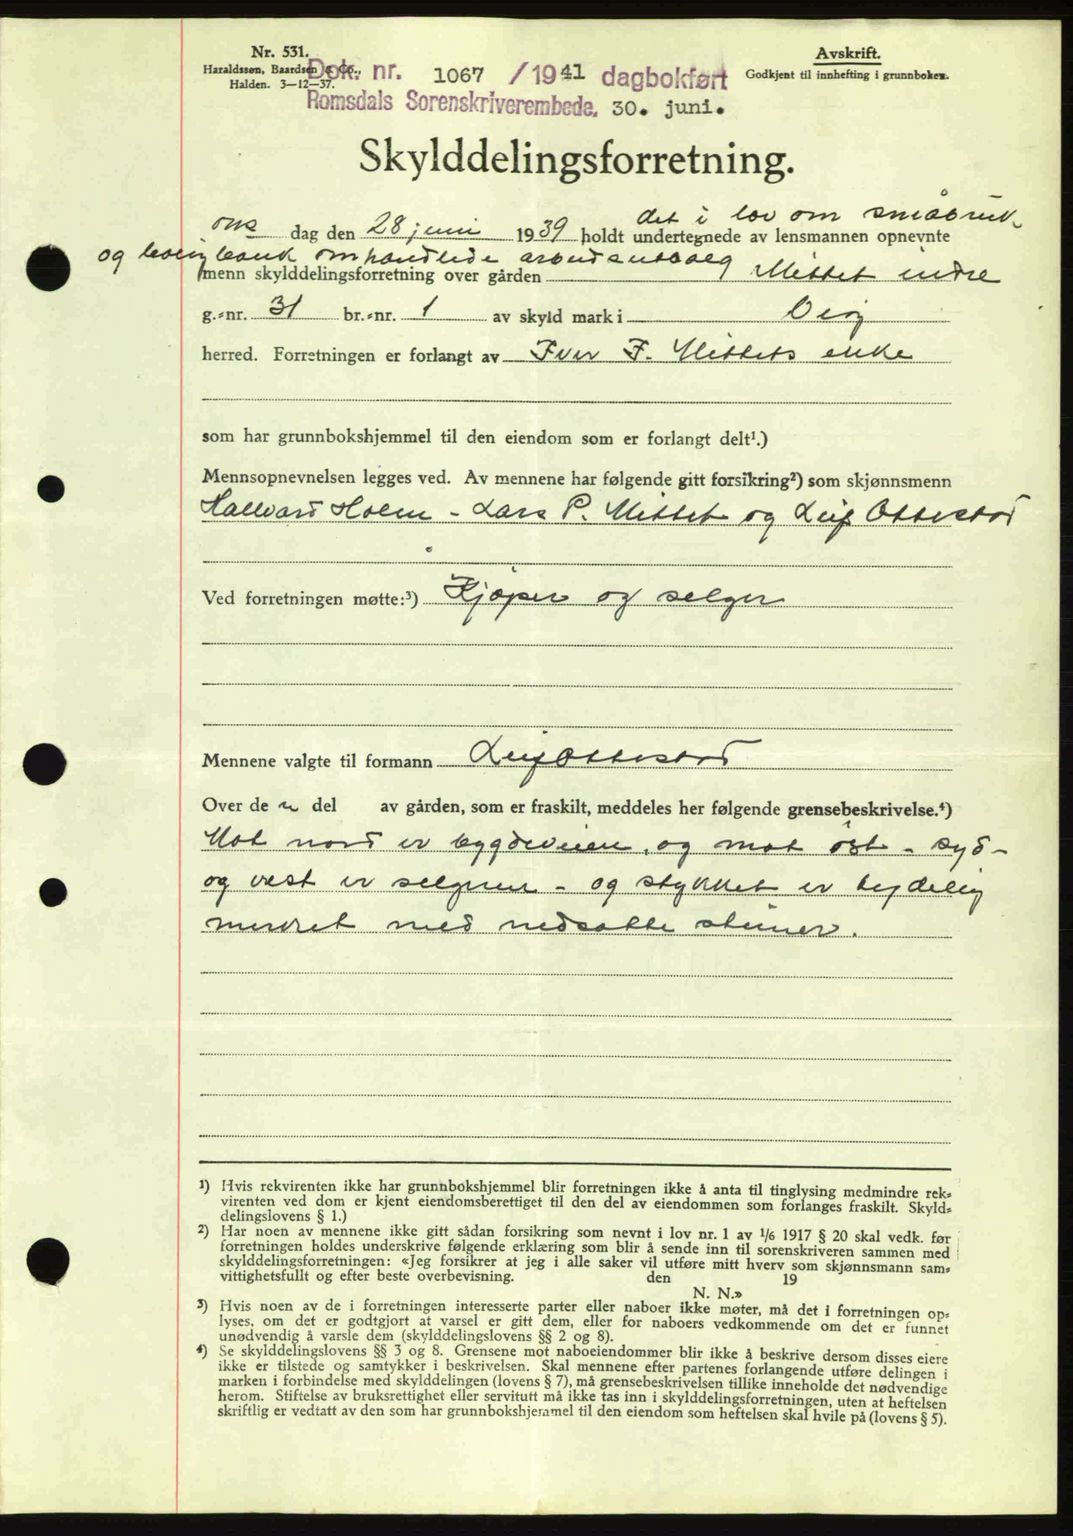 Nr. 531.
Haraldssøn, Baardsen & Co.,
Halden. 3—12—37.
Avskrift.
Godkjent til innhefting i grunnboken.
Dok. nr. 1067 / 1941 dagbokført
Romsdals Sorenskriverembede. 30. juni.
Skylddelingsforretning.
det i lov om småbruk-
ons dag den 28 juni 1939 holdt undertegnede av lensmannen opnevnte
og boligbank omhandlede arbeidsutvalg
menn skylddelingsforretning over gården Mittet indre
g.-nr. 31 br.-nr. 1 av skyld mark i Veøy
herred. Forretningen er forlangt av Iver F. Mittets enke
som har grunnbokshjemmel til den eiendom som er forlangt delt¹.)
Mennsopnevnelsen legges ved. Av mennene har følgende gitt forsikring²) som skjønnsmenn
Hallvard Holm - Lars P. Mittet og Leif Ottestad
Ved forretningen møtte:³) Kjøper og selger
Mennene valgte til formann Leif Ottestad
Over de n del av gården, som er fraskilt, meddeles her følgende grensebeskrivelse.⁴)
Mot nord er bygdeveien, og mot øst - syd -
og vest er selgeren - og stykket er tydelig
merket med nedsatte steiner.
¹) Hvis rekvirenten ikke har grunnbokshjemmel blir forretningen ikke å anta til tinglysing medmindre rek-
virenten ved dom er kjent eiendomsberettiget til den del av eiendommen som forlanges fraskilt. Skyld-
delingslovens § 1.)
²) Har noen av mennene ikke gitt sådan forsikring som nevnt i lov nr. 1 av 1/6 1917 § 20 skal vedk. før
forretningen holdes underskrive følgende erklæring som blir å sende inn til sorenskriveren sammen med
skylddelingsforretningen: «Jeg forsikrer at jeg i alle saker vil utføre mitt hverv som skjønnsmann sam-
vittighetsfullt og efter beste overbevisning. den 19
N. N.»
³) Hvis noen av de i forretningen interesserte parter eller naboer ikke møter, må det i forretningen op-
lyses, om det er godtgjort at varsel er gitt dem, eller for naboers vedkommende om det er funnet
unødvendig å varsle dem (skylddelingslovens §§ 2 og 8).
⁴) Se skylddelingslovens §§ 3 og 8. Grensene mot naboeiendommer blir ikke å beskrive dersom disses eiere
ikke er tilstede og samtykker i beskrivelsen. Skal mennene efter partenes forlangende utføre delingen i
marken i forbindelse med skylddelingen (lovens § 7), må grensebeskrivelsen tillike inneholde det nødvendige
herom. Stiftelse av bruksrettighet eller servitutt må ikke tas inn i skylddelingsforretningen, uten at heftelsen
skriftlig er vedtatt av den som har grunnbokshjemmel til den eiendom som heftelsen skal hvile på (lovens § 5).